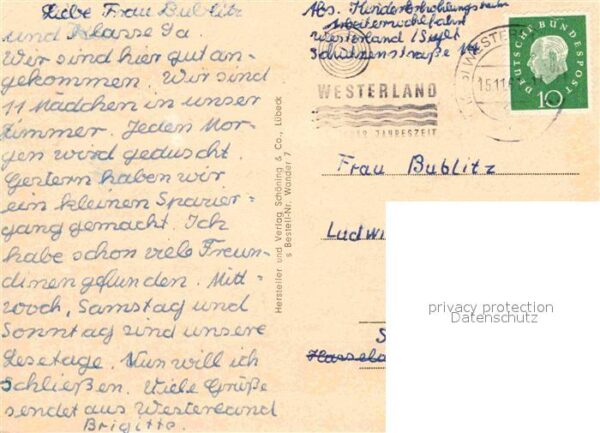 Liebe Frau Bublitz
und Klasse 9a.
Wir sind hier gut an-
gekommen. Wir sind
11 Mädchen in unser
Zimmer. Jeden Mor-
gen wird geduscht.
Gestern haben wir
ein kleinen Spazier-
gang gemacht. Ich
habe schon viele Freun-
dinen gefunden. Mitt-
woch, Samstag und
Sonntag sind unsere
Lesetage. Nun will ich
schließen. Viele Grüße
sendet aus Westerland
Brigitte.
Hersteller und Verlag Schöning & Co., Lübeck
s Bestell-Nr. Wander 7
Abs. Kindererholungsheim
Arbeiterwohlfahrt
Westerland / Sylt
Schützenstraße
WESTERLAND
JAHRESZEIT
WESTER
15.11
DEUTSCHE BUNDESPOST
10
Frau Bublitz
Ludwi
S
privacy protection
Datenschutz